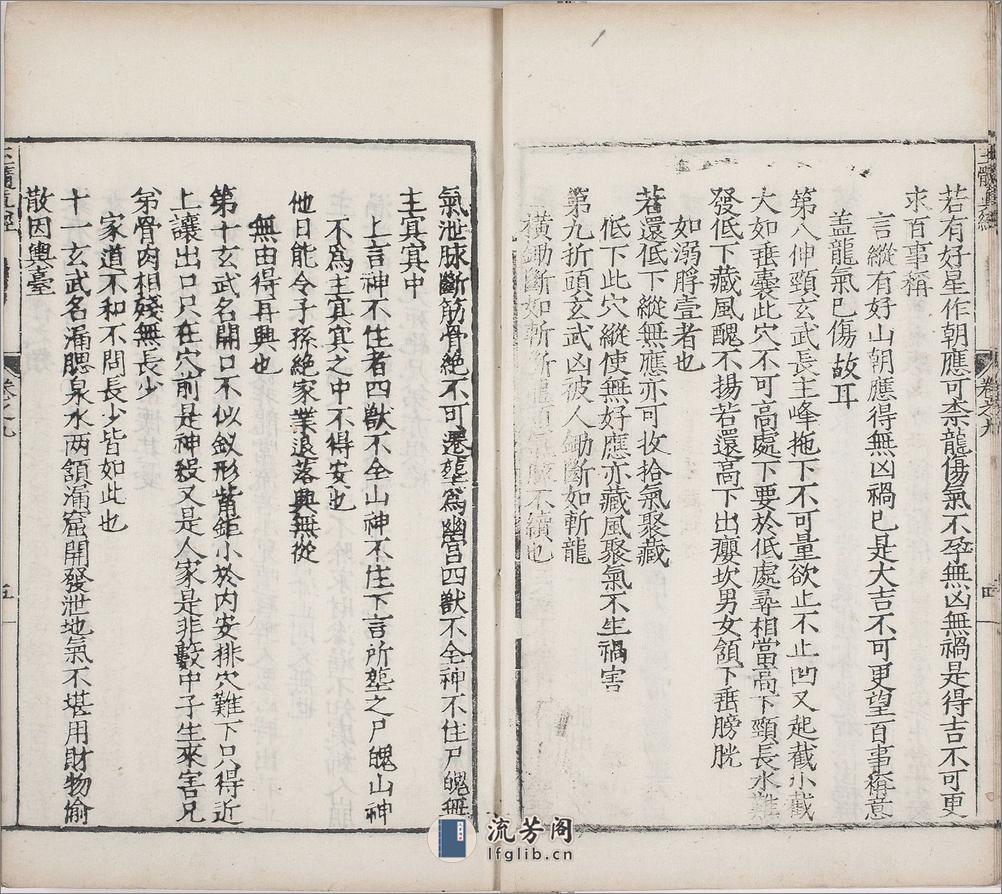 若有好星作朝應可柰龍傷氣不孕無凶無禍是得吉不可更
求百事稱
言縱有好山朝應得無凶禍已是大吉不可更望百事稱意
盖龍氣已傷故耳
第八伸頸玄武長主峰拖下不可量欲止不止凹又起截小截
大如垂囊此穴不可高處下要於低處尋相當高下頸長水難
發低下藏風醜不揚若還高下出癭坎男女領下垂膀胱
如溺脬壹者也
若還低下縱無應亦可收拾氣聚藏
低下此穴縱使無好應亦藏風聚氣不生禍害
第九折頭玄武凶被人鋤斷如斬龍
橫鋤斷如斬斷龍頭氣脉不續也
玉髓真經
卷之九
四
氣泄脉斷筋骨絶不可遷塟爲幽宫四獸不全神不住尸魄無
主冥冥中
上言神不住者四獸不全山神不住下言所塟之尸魄山神
不爲主冥冥之中不得安也
他日能令子孫絶家業退落興無從
無由得再興也
第十玄武名開口不似釵形觜鉅小於内安排穴難下只得近
上讓出口只在穴前是神殺又是人家是非藪中子生來害兄
弟骨肉相殘無長少
家道不和不問長少皆如此也
十一玄武名漏腮泉水兩頷漏窟開發泄地氣不堪用財物偷
散因輿臺
玉髓真經
卷之九
五
流芳阁
lfglib.cn